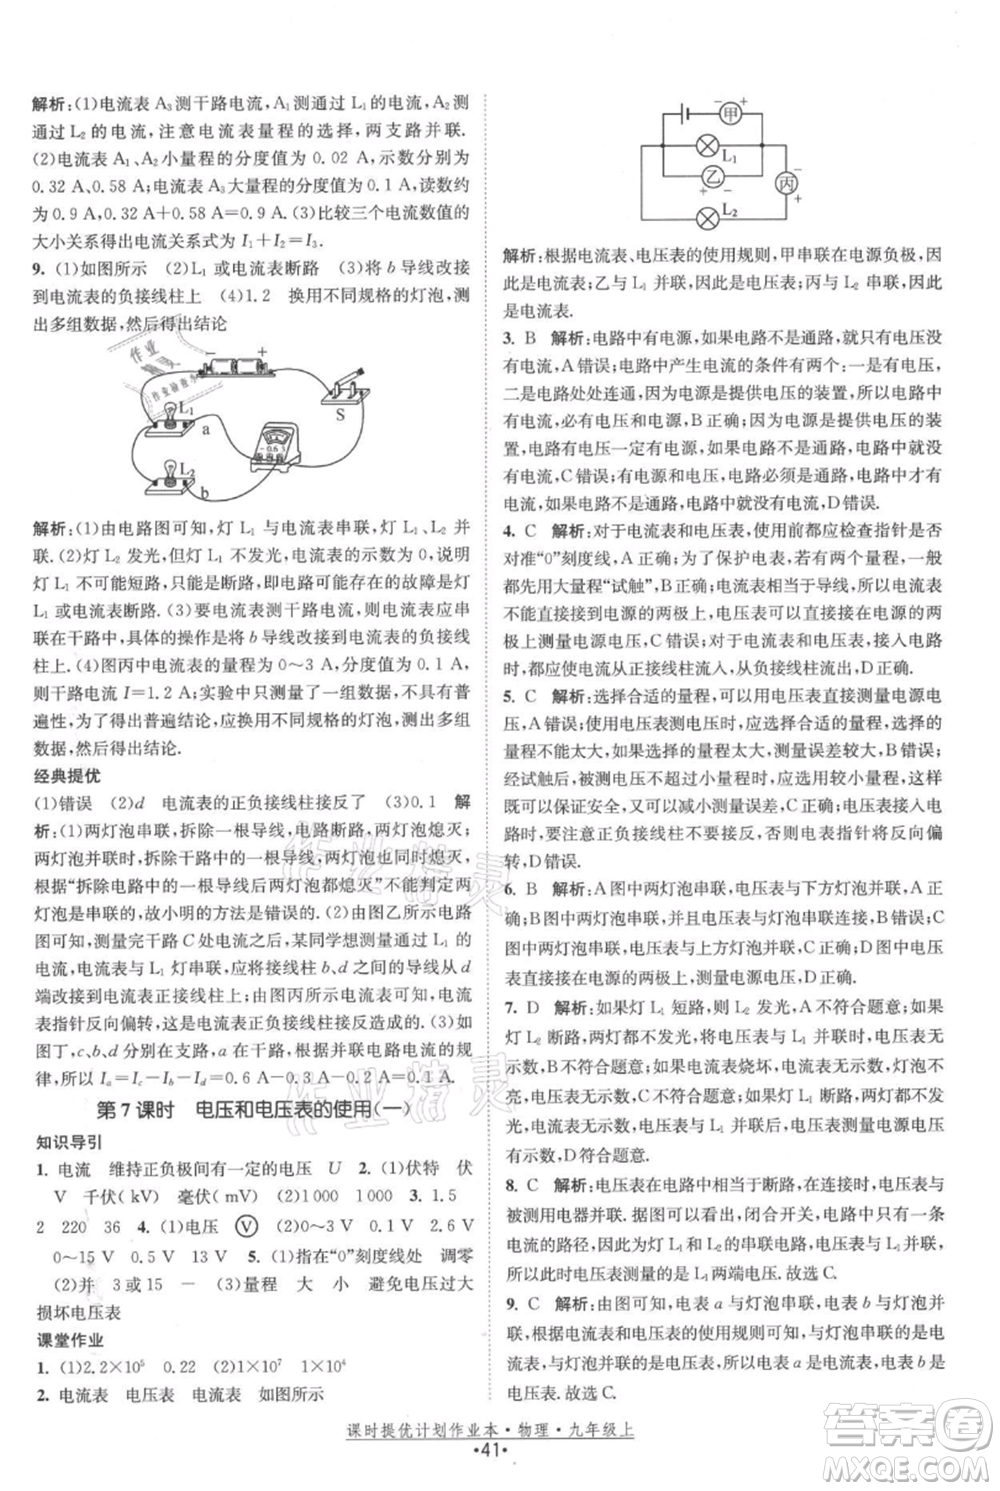 解析:(1)电流表 A₃ 测干路电流,A₁测通过 L₁ 的电流,A₂ 测
通过 L₂ 的电流,注意电流表量程的选择,两支路并联.
(2)电流表 A₁、A₂ 小量程的分度值为 0.02 A,示数分别为
0.32 A、0.58 A;电流表 A₃大量程的分度值为 0.1 A,读数约
为 0.9 A,0.32 A+0.58 A=0.9 A. (3)比较三个电流数值的
大小关系得出电流关系式为 I₁+I₂=I₃.
9. (1)如图所示 (2)L₁ 或电流表断路 (3)将 b 导线改接
到电流表的负接线柱上 (4)1.2 换用不同规格的灯泡,测
出多组数据,然后得出结论
− +
L₁
a
S
−0.6 3
L₂
b
解析:(1)由电路图可知,灯 L₁ 与电流表串联,L₁、L₂ 并
联. (2)灯 L₂ 发光,但灯 L₁ 不发光,电流表的示数为 0,说明
灯 L₁ 不可能短路,只能是断路,即电路可能存在的故障是灯
L₁ 或电流表断路. (3)要电流表测干路电流,则电流表应串
联在干路中,具体的操作是将 b 导线改接到电流表的负接线
柱上. (4)图丙中电流表的量程为 0～3 A,分度值为 0.1 A,
则干路电流 I=1.2 A;实验中只测了一组数据,不具有普
遍性,为了得出普遍结论,应换用不同规格的灯泡,测出多组
数据,然后得出结论.
经典提优
(1)错误 (2)d 电流表的正负接线柱接反了 (3)0.1 解
析:(1)两灯泡串联,拆除一根导线,电路断路,两灯泡熄灭;
两灯泡并联时,若拆除干路中的一根导线,两灯泡都熄灭,
因“拆除电路中的一根导线后,两灯泡都熄灭”时,两灯泡可
能串联、可能并联,故小明的方法是错误的. (2)由图乙所示电路
图可知,测量完干路 C 处电流之后,某同学想测量并联支路
电流,电流表与 L₁ 灯串联,应将 b、d 之间的导线从 b 移到 d
端改接到电流表正接线柱上;由图丙所示可知,实验时,电流
表指针反向偏转,这是电流表的正负接线柱接反造成的. (3)如
图丁,c、b、d 分别在支路,a 在干路,并联电路电流的规
律,所以 Ic=I−Ib−Id=0.6 A−0.3 A−0.2 A=0.1 A.
第 7 课时 电压和电压表的使用(一)
知识导引
1. 电流 维持正负极间有一定的电压 U 2. (1)伏特 伏
V 千伏(kV) 毫伏(mV) (2)1 000 1 000 3. 1.5
2 220 36 4. (1)电压 Ⓥ (2)0～3 V 0.1 V 2.6 V
0～15 V 0.5 V 13 V 5. (1)指在“0”刻度线处 调零
(2)并 3 或 15 − (3)量程 大 小 避免电压过大
损坏电压表
课堂作业
1. (1)2.2×10⁵ 0.22 (2)1×10⁷ 1×10⁴
2. 电流表 电压表 电流表 如图所示
− +
甲
L₁
乙
− +
丙
L₂
解析:根据电流表、电压表的使用规则,甲串联在电源负极,
因此是电流表;乙与 L₁ 并联,因此是电压表;丙与 L₂ 串联,因此
是电流表.
3. B 解析:电路中有电源,如果电路不是通路,电路中也没
有电流,A 错误;电路中产生电流的条件:一是有电压(电源),
二是电路处处连通,因为电源是提供电压的,所以电路中有电
流,必须有电源,B 正确;电压是由电源提供的,有电源的电路
中一定有电压,而电路断开时仍有电源,即电路两端仍有电
压,但没有电流,C 错误;电路中有电源,就为电路提供了电压,
若电路中有电流,则电路必须是通路,电路断路时,电路中没有
电流,D错误.
4. C 解析:对于电流表和电压表,使用前都应检查指针是否
对准“0”刻度线,A 正确;为了保护电表,若有两个量程,一般
都先用大量程“试触”,B 正确;电流表相当于导线,绝对不允许
直接接到电源的两极上,电压表可以直接接在电源的两极
上测量电源电压,C 错误;对于电流表和电压表,接入电路时
都应使电流从正接线柱流入,从负接线柱流出,D 正确.
5. C 解析:选择合适的量程,可以用电压表直接测量电源电
压,A 错误;使用电压表测电压时,应选择合适的量程,所选
量程不能太大,如果电压表的量程太大,测量误差较大,B 错误;
经试触后,在所测电压不超过小量程时,选用小量程,这样既
可以保证安全,又减小误差,C 正确;使用电压表测量电压时,
电路中要注意正负接线柱不要接反,否则电压表指针将反向偏
转,D 错误.
6. B 解析:A 图中两灯泡串联,电压表与下方灯泡并联,A 错
误;B图中两灯泡并联,电压表与灯泡并联连接,B 正确;C
图中两灯泡串联,电压表与上方灯泡并联,C 错误;D 图中电压
表直接接在电源的两极上,测量电源电压,D 错误.
7. D 解析:如果灯 L₁ 短路,则 L₂ 发光,A 不符合题意;如果
灯 L₂ 断路,两灯都不发光,将电压表与 L₁ 并联时,电压表无
示数,B 不符合题意;如果电流表烧坏,电压表与 L₁ 并联时
8. C 解析:电压表在电路中相当于断路,使用时应与被
测的用电器并联. 根据图可以看出,闭合开关,电路中只有一条
电流的路径,因为灯 L₁ 和 L₂ 首尾相连,故是串联电路,电压表与 L₁
并联,所以电压表测量的是 L₁两端电压.故选 C.
9. C 解析:由图可知,电表 a 与灯泡串联,电表 b 与灯泡并
联,因为电流表与灯泡串联,电压表与灯泡并联,
所以电表 a 是电流表,电表 b
是电压表,故选 C.
课时提优计划作业本·物理·九年级上
·41·
作业精灵
作业精灵
答案圈
MXQE.COM